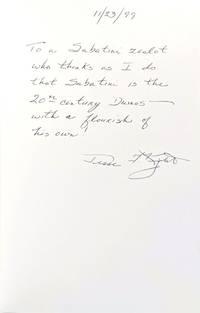 11/23/97
To a Sabatini zealot
who thinks as I do
that Sabatini is the
20th century Dumas —
with a flourish of
his own